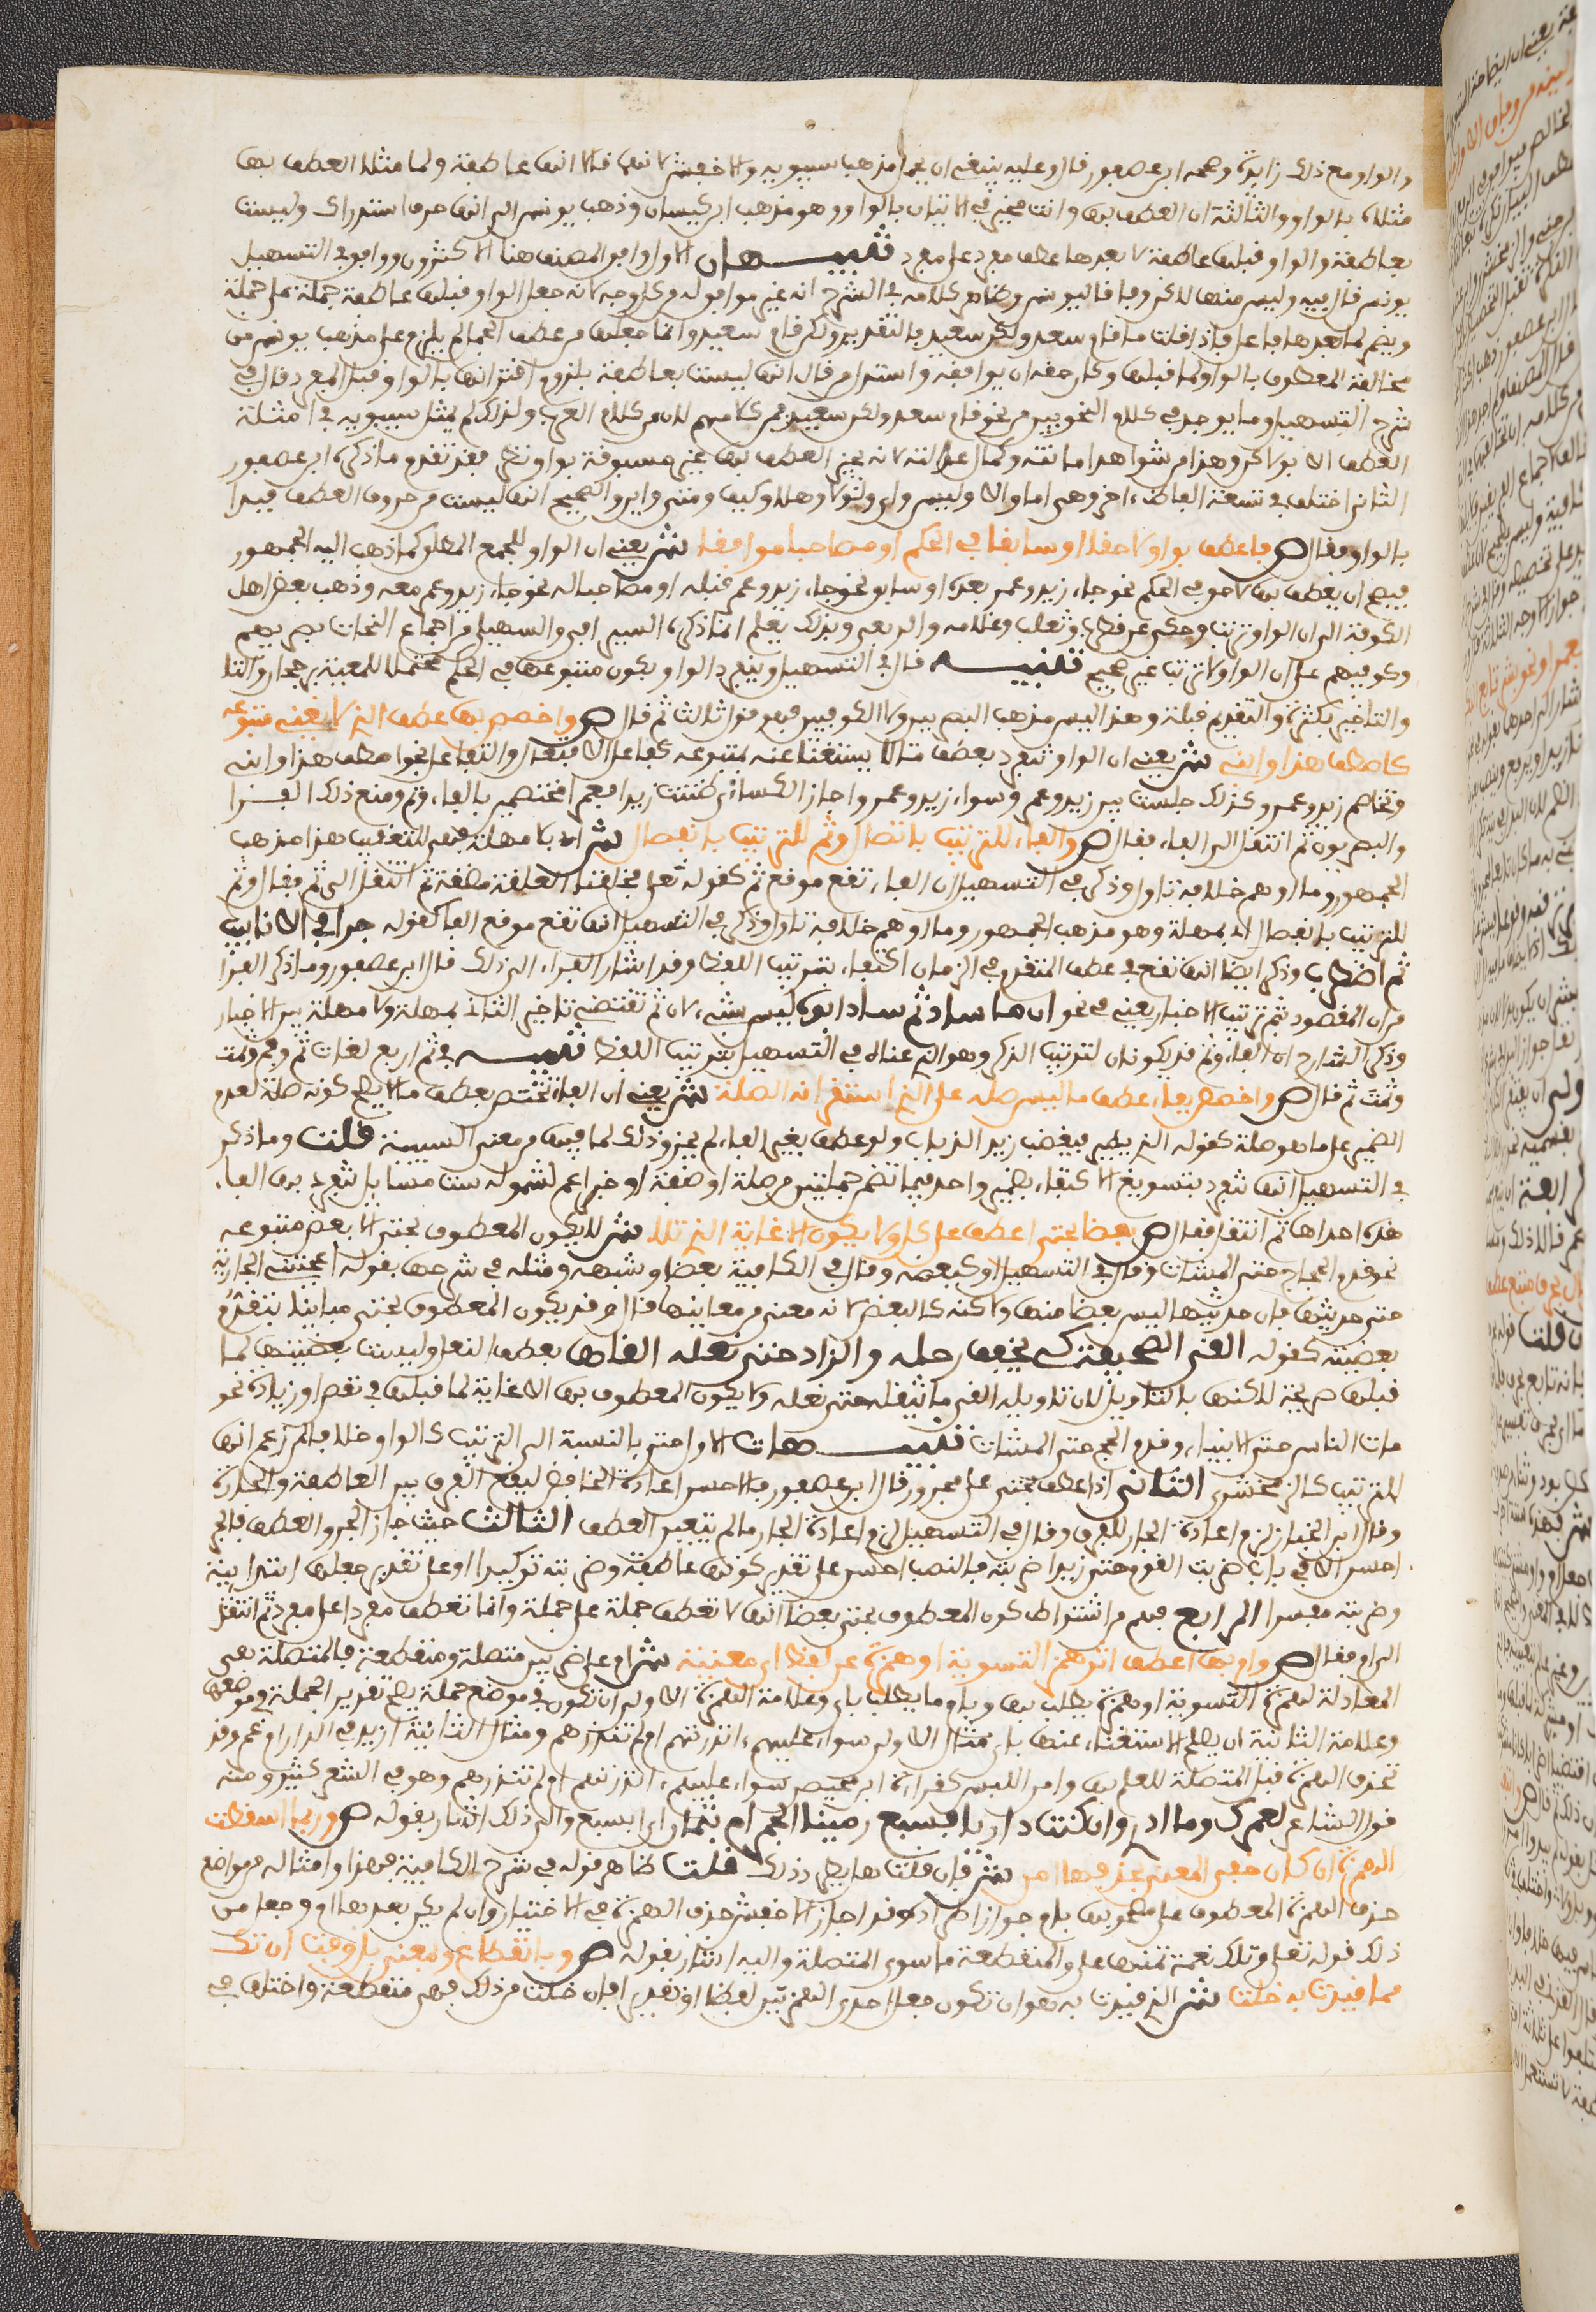 والواو مع ذلك زايدة وصححه ابن عصفور قال وعليه ينبغي ان يحمل مذهب سيبويه والاخفش لانهما قالا انها عاطفة ولما مثلا العطف بها
مثلاه بالواو والثالث ان العطف بها وانت مخير في الاتيان بالواو وهو مذهب ابن كيسان وذهب يونس الى انها حرف استدراك وليست
بعاطفة والواو قبلها عاطفة لما بعدها عطف مفرد على مفرد تنبيهان الاول وافق المصنف هنا الاكثرين ووافق في التسهيل
يونس فقال فيه وليس منها لكن وفاقا ليونس وظاهر كلامه في الشرح انه غير موافق له من كل وجه لانه جعل الواو قبلها عاطفة جملة على جملة
ويضمر لما بعدها عامل فاذا قلت ما قام سعد ولكن سعيد فالتقدير ولكن قام سعيد وانما جعلها من عطف الجمل لما يلزم على مذهب يونس من
مخالفة المعطوف بالواو لما قبلها وكان حقه ان يوافقه واستدل من قال انها ليست بعاطفة بلزوم اقترانها بالواو قبل المفرد قال في
شرح التسهيل وما يوجد في كلام النحويين من نحو ما قام سعد ولكن سعيد فمن كلامهم لا من كلام العرب ولذلك لم يمثل سيبويه في امثلة
العطف الا بولكن وهذا من شواهد امانته وكمال عدالته لانه يجيز العطف بها غير مسبوقة بواو وفيه نظر فقد تقدم ما ذكره ابن عصفور
الثاني اختلف في تسعة الفاظ اخر وهي اما والا وليس واي ولولا وهلا وكيف ومتى واين والصحيح انها ليست من حروف العطف فبدا
بالواو فقال ص فاعطف بواو لاحقا او سابقا في الحكم او مصاحبا موافقا ش يعني ان الواو للجمع المطلق كما ذهب اليه الجمهور
فيصح ان يعطف بها لاحق في الحكم نحو جاء زيد وعمرو بعده او سابق نحو جاء زيد وعمرو قبله او مصاحب له نحو جاء زيد وعمرو معه وذهب بعض اهل
الكوفة الى ان الواو ترتب وحكي عن قطرب وثعلب وغلامه والربعي وبذلك يعلم ان ما ذكره السيرافي والسهيلي من اجماع النحات بصريهم
وكوفيهم على ان الواو لا ترتب غير صحيح تنبيه قال في التسهيل وينفرد الواو بكون متبوعها في الحكم محتملا للمعية برجحان وللتأ
والتاخير بكثرة والتقدم بقلة وهذا ليس مذهب البصريين ولا الكوفيين فهو قول ثالث ثم قال ص واخصص بها عطف الذي لا يغني متبوعه
كاصطف هذا وابني ش يعني ان الواو تنفرد بعطف ما لا يستغنا عنه بمتبوعه كفاعل الافتعال والتفاعل نحو اصطف هذا وابني
وتخاصم زيد وعمرو وكذلك جلست بين زيد وعمرو وسواء زيد وعمرو واجاز الكسائي ظننت زيدا فعمرا مختصمين بالفاء وثم ومنع ذلك الفرا
والبصريون ثم انتقل الى الفاء فقال ص والفاء للترتيب باتصال وثم للترتيب بانفصال ش اي بلا مهلة فهي للتعقيب هذا مذهب
الجمهور وما اوهم خلافه تاول وذكر في التسهيل ان الفاء تقع موقع ثم كقوله تعلى فخلقنا العلقة مضغة ثم انتقل الى ثم فقال وثم
للترتيب بانفصال اي بمهلة وهو مذهب الجمهور وما اوهم خلافه تاول وذكر في التسهيل انها تقع موقع الفا كقوله جرى في الانابيب
ثم اضطرب وذكر ايضا انها تقع في عطف المتقدم في الزمان اكتفاء بترتيب اللفظ وقد اشار الفراء الى ذلك قال ابن عصفور وما ذكر الفرا
من ان المقصود بثم ترتيب الاخبار يعني في نحو ان من ساد ثم ساد ابوه ليس بشيء لان ثم تقتضي تاخير الثاني بمهلة ولا مهلة بين الاخبار
وذكر الشارح ان الفاء وثم قد يكونان لترتيب الذكر وهو الذي عناه في التسهيل بترتيب اللفظ تنبيه في ثم اربع لغات ثم وفم وثمت
وثمت ثم قال ص واخصص بفاء عطف ما ليس صله على الذي استقر انه الصلة ش يعني ان الفاء تختص بعطف ما لا يصلح كونه صلة لعدم
الضمير على ما هو صلة كقوله الذي يطير فيغضب زيد الذباب ولو عطف بغير الفاء لم يجز وذلك لما فيها من معنى السببية قلت وما ذكر
في التسهيل انها تنفرد بتسويغ الاكتفاء بضمير واحد فيما تضمن جملتين من صلة او صفة او خبر اعم لشموله ست مسايل تنفرد بهن الفاء
هذه احداها ثم انتقل فقال ص بعضا بحتى اعطف على كل ولا يكون الا غاية الذي تلا ش لا يكون المعطوف بحتى الا بعض متبوعه
نحو قدم الحجاج حتى المشات وقال في التسهيل او كبعضه وقال في الكافية بعضا وشبهه ومثله في شرحها بقوله اعجبتني الجارية
حتى حديثها فان حديثها ليس بعضا منها ولاكنه كالبعض لانه معنى من معانيها قال وقد يكون المعطوف بحتى مباينا بتقدير
بعضيته كقوله القى الصحيفة كي يخفف رحله والزاد حتى نعله القاها بعطف النعل وليست بعضيتها لما
قبلها صريحة لاكنها بالتاويل لان تاويله القى ما يثقله حتى نعله ولا يكون المعطوف بها الا غاية لما قبلها في نقص او زيادة نحو
مات الناس حتى الانبياء وقدم الحجاج حتى المشات تنبيهات الاول حتى بالنسبة الى الترتيب كالواو خلافا لمن زعم انها
للترتيب كالزمخشري الثاني اذا عطف بحتى على مجرور قال ابن عصفور فالاحسن اعادة الخافض ليقع الفرق بين العاطفة والجارة
وقال ابن الخباز لزم اعادة الجار للفرق وقال في التسهيل لزم اعادة الجار ما لم يتعين العطف الثالث حيث جاز الجر والعطف فالجر
احسن الا في باب ضربت القوم حتى زيدا ضربته فالنصب احسن على تقدير كونها عاطفة وضربته توكيدا او على تقدير جعلها ابتدائية
وضربته مفسرا الرابع فهم من اشتراط كون المعطوف بحتى بعضا انها لا تعطف جملة على جملة وانما تعطف مفردا على مفرد ثم انتقل
الى ام فقال ص وام بها اعطف اثر همز التسوية او همزة عن لفظ اي مغنية ش ام على ضربين متصلة ومنقطعة فالمتصلة هي
المعادلة لهمزة التسوية او همزة يطلب بها وبام ما يطلب باي وعلامة الهمزة الاولى ان تكون في موضع جملة يصح تقدير الجملة في موضعها
وعلامة الثانية ان يصلح الاستغناء عنها باي مثال الاولى سواء عليهم ءانذرتهم ام لم تنذرهم ومثال الثانية ازيد في الدار ام عمرو وقد
تحذف الهمزة قبل المتصلة للعلم بها وامن اللبس كقراءة ابن محيصن سواء عليهم انذرتهم ام لم تنذرهم وهو في الشعر كثير ومنه
قول الشاعر لعمرك وما ادري وان كنت داريا بسبع رمين الجمر ام بثمان اي ابسبع والى ذلك اشار بقوله ص وربما اسقطت
الهمزة ان كان خفى المعنى بحذفها امن ش فان قلت هل يطرد ذلك قلت ظاهر قوله في شرح الكافية فهذا وامثاله من مواضع
حذف الهمزة المعطوف على مصحوبها بام جواز اطراده وقد اجاز الاخفش حذف الهمزة في الاختيار وان لم يكن بعدها ام وجعل من
ذلك قوله تعلى وتلك نعمة تمنها علي والمنقطعة ما سوى المتصلة واليه اشار بقوله ص وبانقطاع وبمعنى بل وفت ان تك
مما قيدت به خلت ش الذي قيدت به هو ان تكون بعد احدى الهمزتين لفظا او تقديرا فان خلت من ذلك فهي منقطعة واختلف في